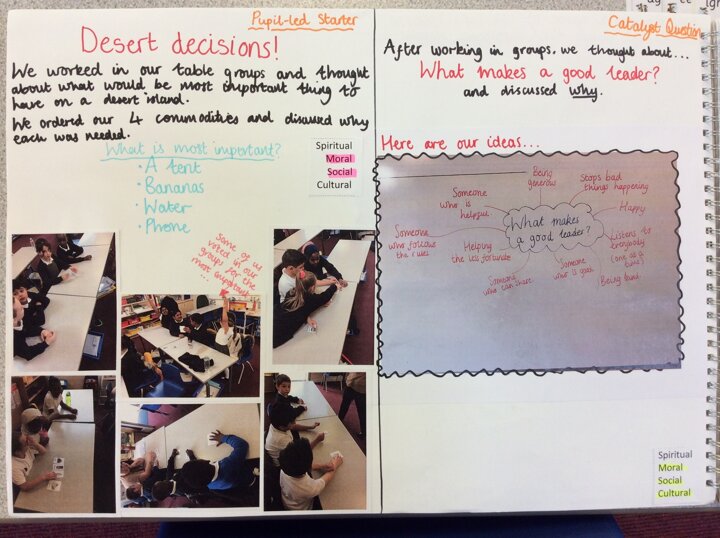 Pupil-led Starter
Desert decisions!
We worked in our table groups and thought
about what would be most important thing to
have on a desert island.
We ordered our 4 commodities and discussed why
each was needed.
What is most important?
· A tent
· Bananas
· Water
· Phone
Spiritual
Moral
Social
Cultural
Some of us
voted in our
groups for the
most important
...
Catalyst Question
After working in groups, we thought about...
What makes a good leader?
and discussed why.
Here are our ideas...
What makes
a good leader?
Being
generous
Stops bad
things happening
Happy
Listens to
everybody
(one at a
time)
(Being fair)
Someone
who is good
Someone
who can share
Helping
the less fortunate
Someone
who follows
the rules
Someone
who is
helpful
Spiritual
Moral
Social
Cultural